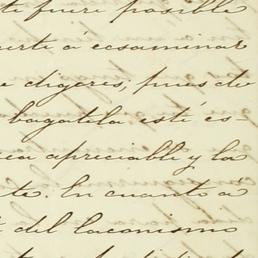 te fuere posible
erte á ecsaminar
e digeres, pues de
bagatela esté es-
ea apreciable y la
te. En cuanto á
del laconismo